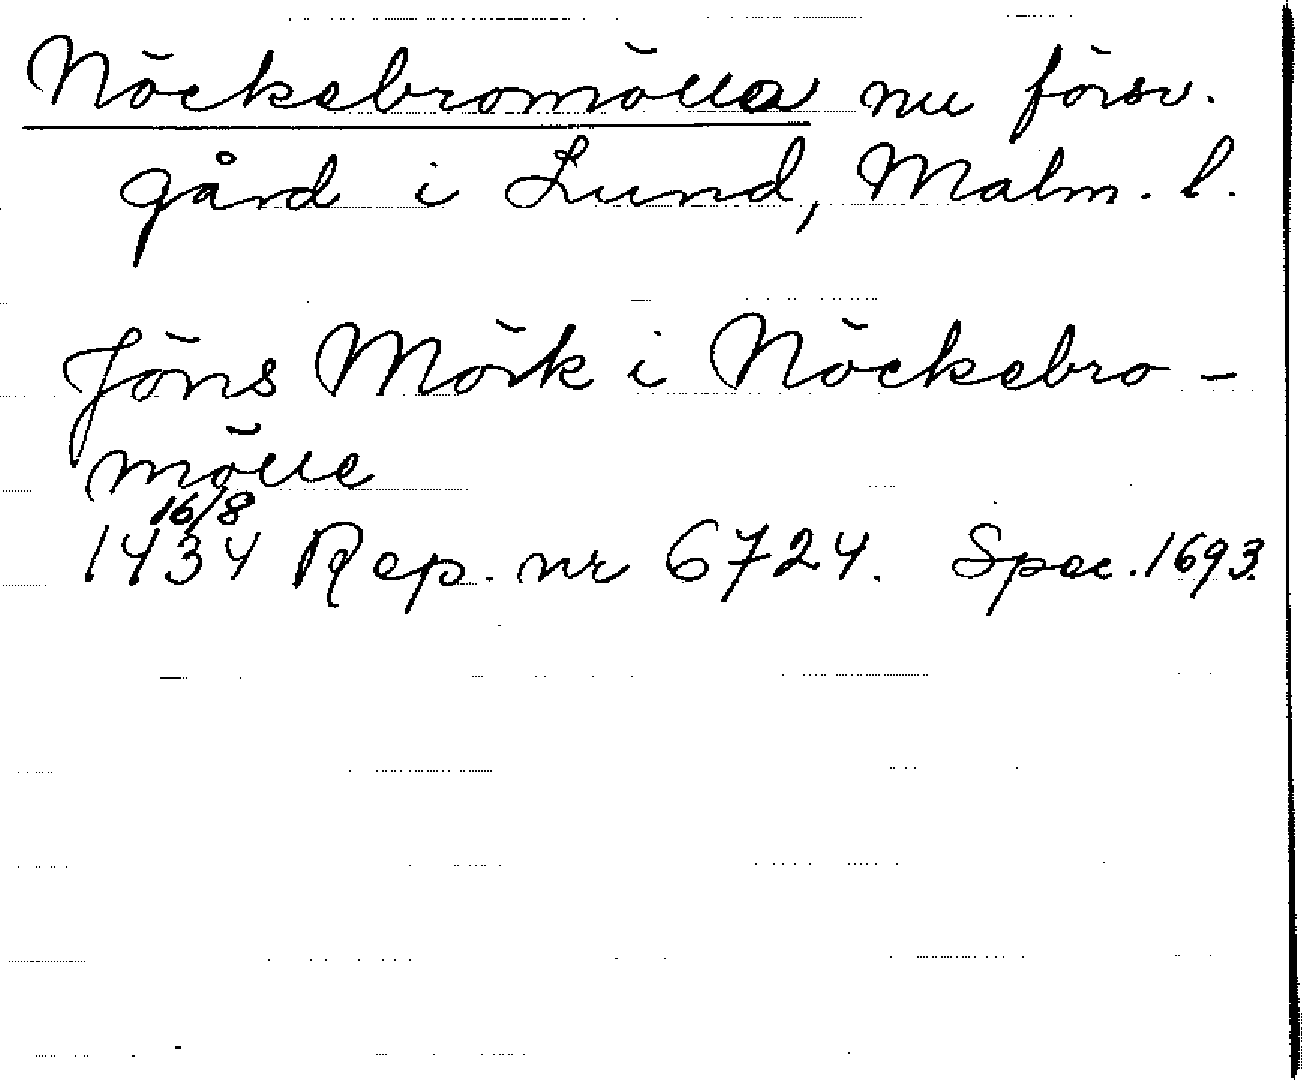 Nöckebromölla nu försv.
gård i Lund, Malm. l.
Jöns Mörk i Nöckebro-
mölle
16/8
1434 Rep. nr 6724. Spec. 1693.